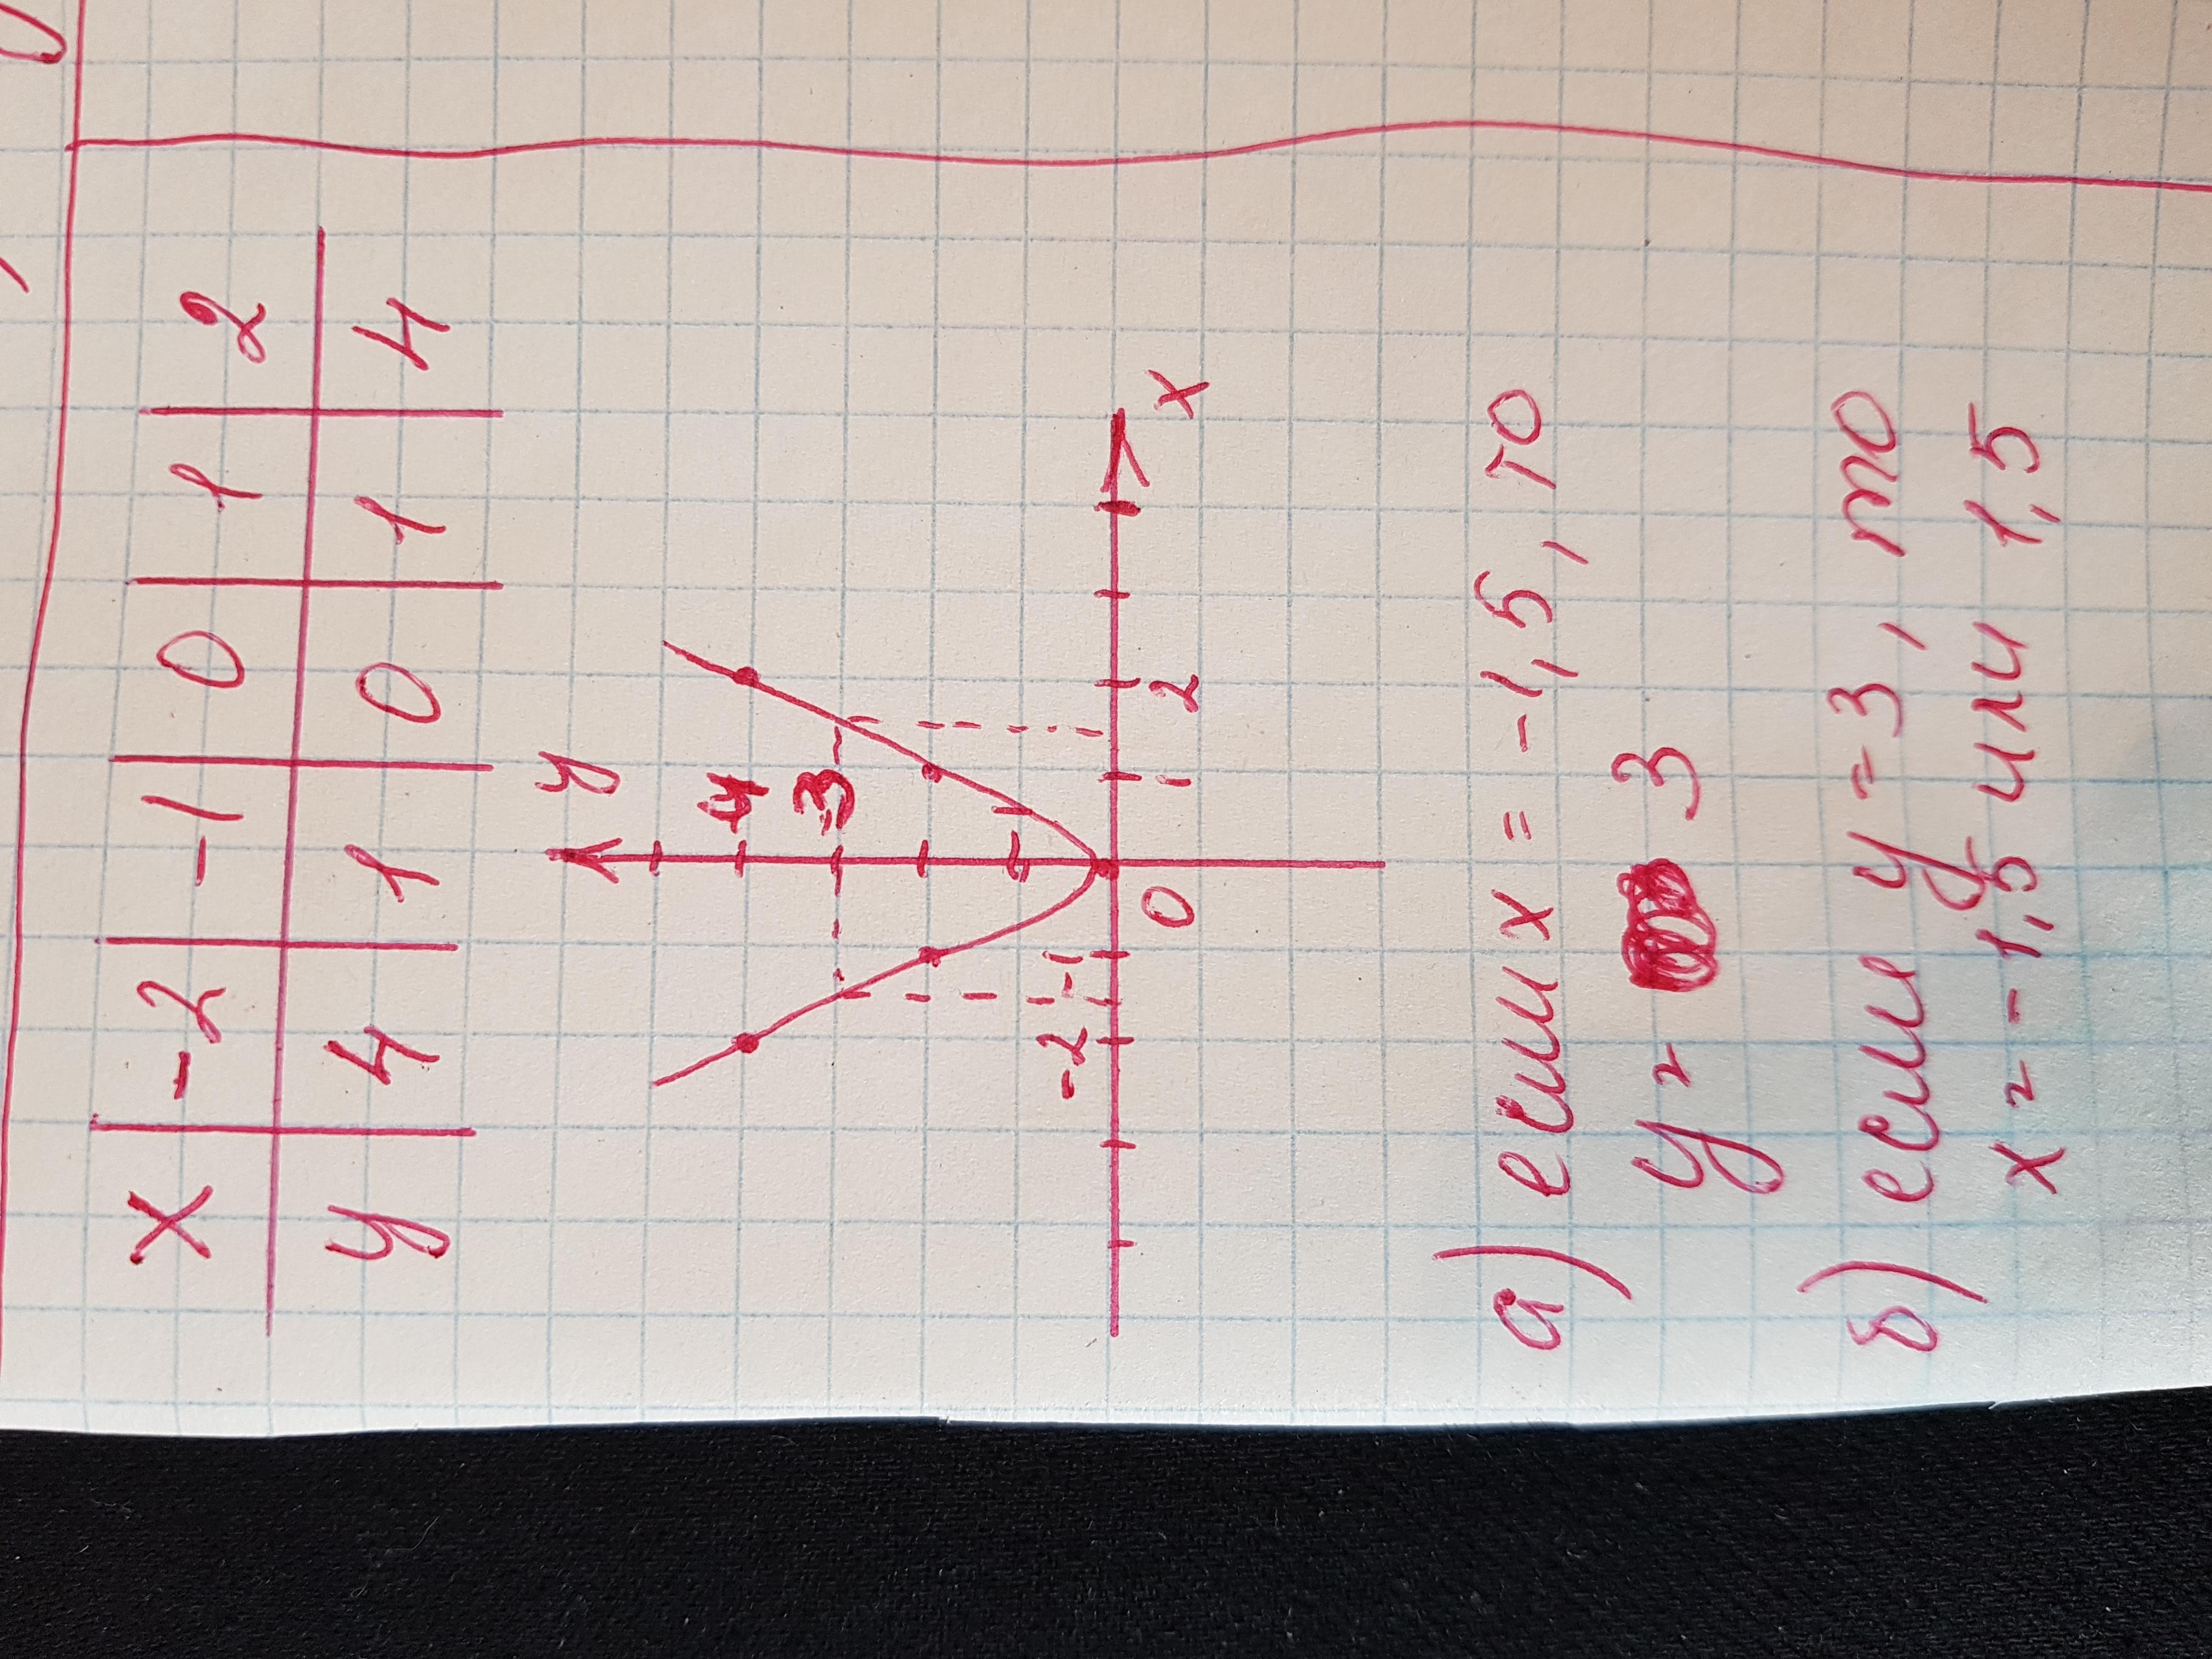 x -2 -1 0 1 2
y 4 1 0 1 4
y
4
3
1
-2 -1
0 1 2 x
а) если x = -1,5, то
y = 3
б) если y = 3, то
x = -1,5 или 1,5